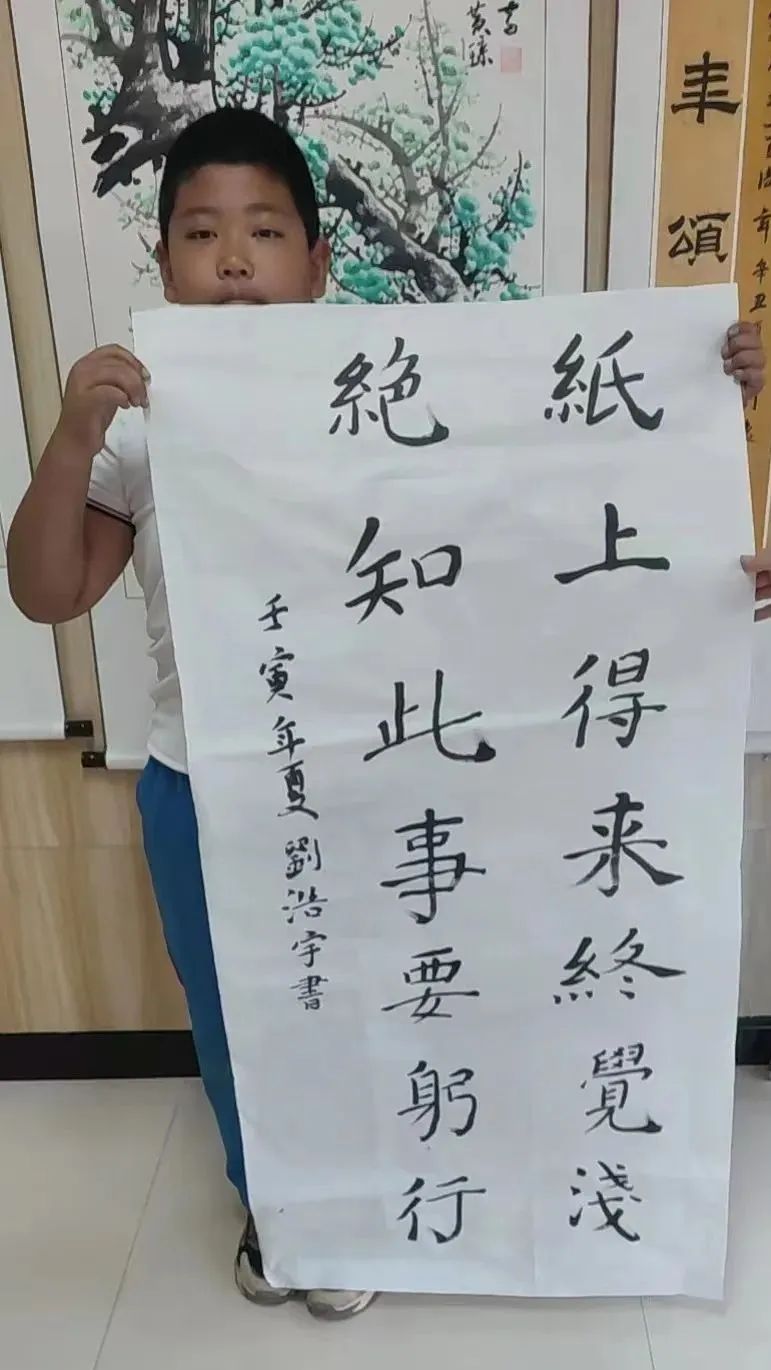 紙上得来終覺淺
絶知此事要躬行
壬寅年夏劉浩宇書